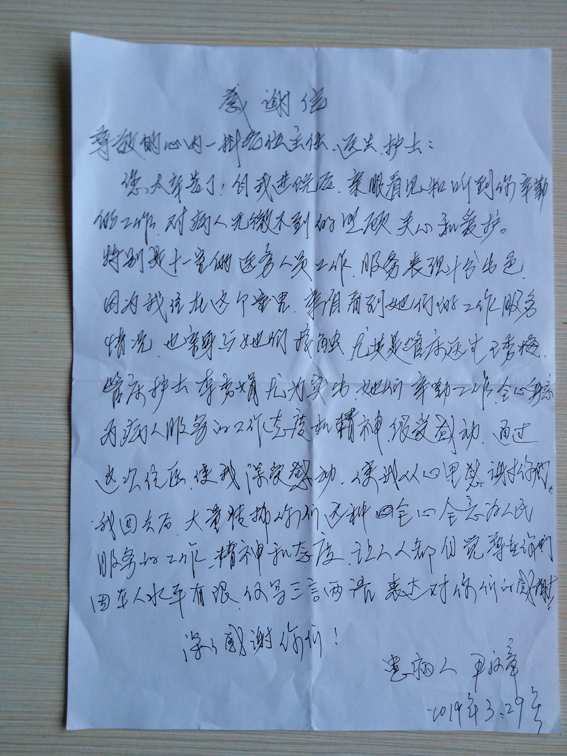 感谢信
尊敬的心内一科各位主任、医生、护士：
您们太辛苦了！自我进院后，亲眼看见和听到你们辛勤
的工作，对病人无微不到的照顾、关心和爱护。
特别是十一室的医务人员工作、服务表现十分出色。
因为我住在这个室里，亲自看到她们的工作服务
情况，也亲身与她们接触，尤其是管床医生
管床护士 尤为突出，她们辛勤工作，全心身意
为病人服务的工作态度和精神很受感动，通过
这次住医，使我深受感动，使我从心里感谢你们。
我回去后，大量传扬你们这种 全心全意为人民
服务的工作、精神和态度，让人人都自觉尊重你们
因本人水平有限，仅写三言两语，表达对你们的感谢！
深深感谢你们！
患病人
2019年3.29号